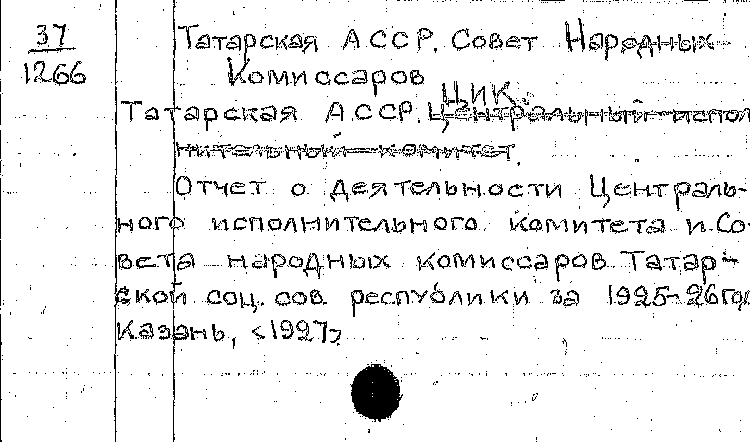 37
1266
Татарская АССР. Совет Народных
Комиссаров
ЦИК.
Татарская АССР. Центральный испол
нительный комитет.
Отчет о деятельности Централь-
ного исполнительного комитета и Со-
вета народных комиссаров Татар-
ской соц. сов. республики за 1925-26 год
Казань, <1927>